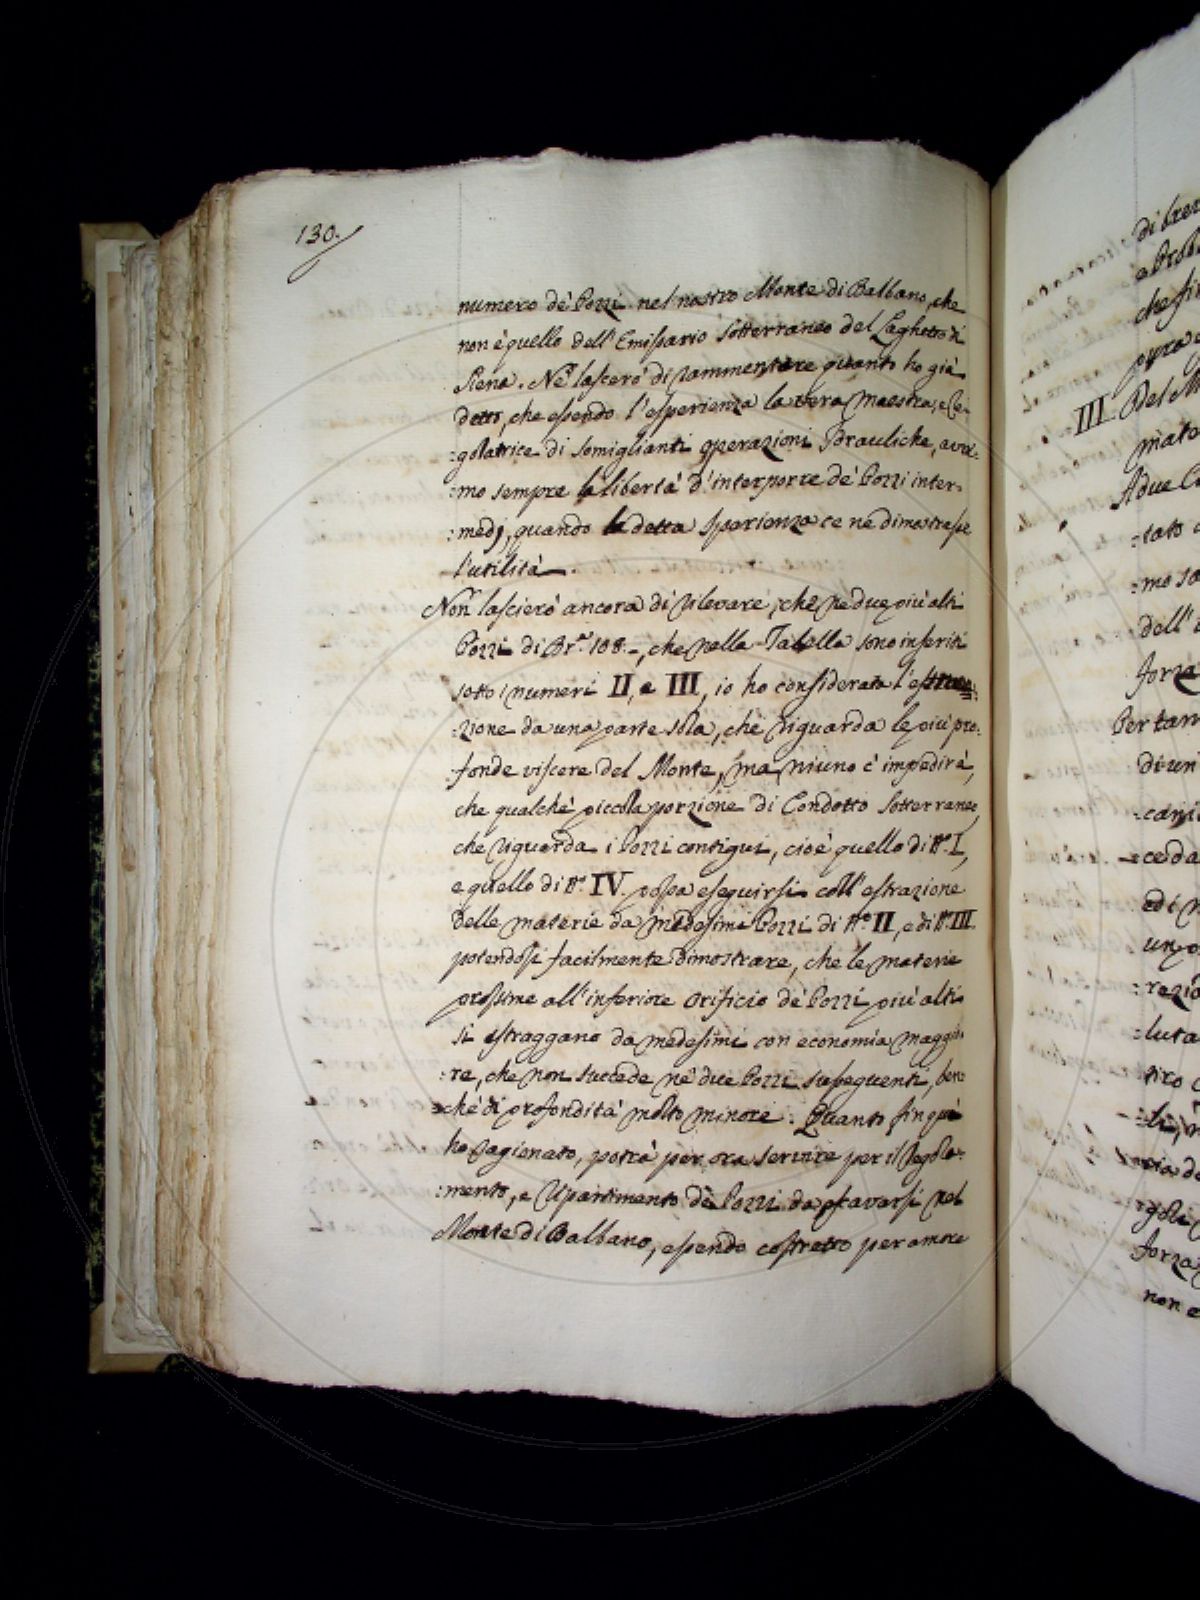 130.
numero de' Pozzi nel nostro Monte di Balbano, che
non è quello dell'Emissario sotterraneo del Laghetto di
Siena. Ne' lascerò di rammentare quanto ho già
detto, che essendo l'esperienza la vera maestra, e Re-
:golatrice di somiglianti operazioni Idrauliche, avre-
:mo sempre la libertà d'interporre de' Pozzi inter-
:medj, quando la detta sperienza ce ne dimostrasse
l'utilità.
Non lascierò ancora di rilevare, che ne due più alti
Pozzi di Br.a 108.-, che nella Tabella sono inseriti
sotto i numeri II, e III, io ho considerata l'estra-
:zione da una parte sola, che riguarda le più pro-
:fonde viscere del Monte, ma niuno c'impedirà,
che qualche piccola porzione di Condotto sotterraneo,
che riguarda i Pozzi contigui, cioè quello di N.o I,
e quello di N.o IV. possa eseguirsi coll'estrazione
delle materie da medesimi Pozzi di N.o II, e di N.o III.
potendosi facilmente dimostrare, che le materie
prossime all'inferiore orificio de' Pozzi più alti
si estraggano da medesimi con economia maggio-
:re, che non succede ne' due Pozzi susseguenti, ben-
:chè di profondità molto minore. Quanto fin quì
ho ragionato, potrà per ora servire per il Regola-
:mento, e ripartimento de' Pozzi da scavarsi nel
Monte di Balbano, essendo costretto per amore
III. Del M
Per tan
di un
dell'
forza
non